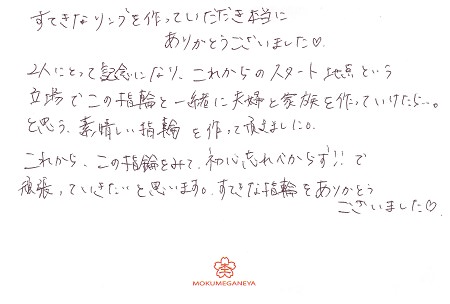 すてきなリングを作っていただき本当に
ありがとうございました♡.
2人にとって記念になり、これからのスタート地点という
立場でこの指輪と一緒に夫婦と家族を作っていけたら…。
と思う、素晴しい指輪を作って頂きました。
これから、この指輪をみて、初心忘れべからず!!で
頑張っていきたいと思います。すてきな指輪をありがとう
ございました♡.
MOKUMEGANEYA